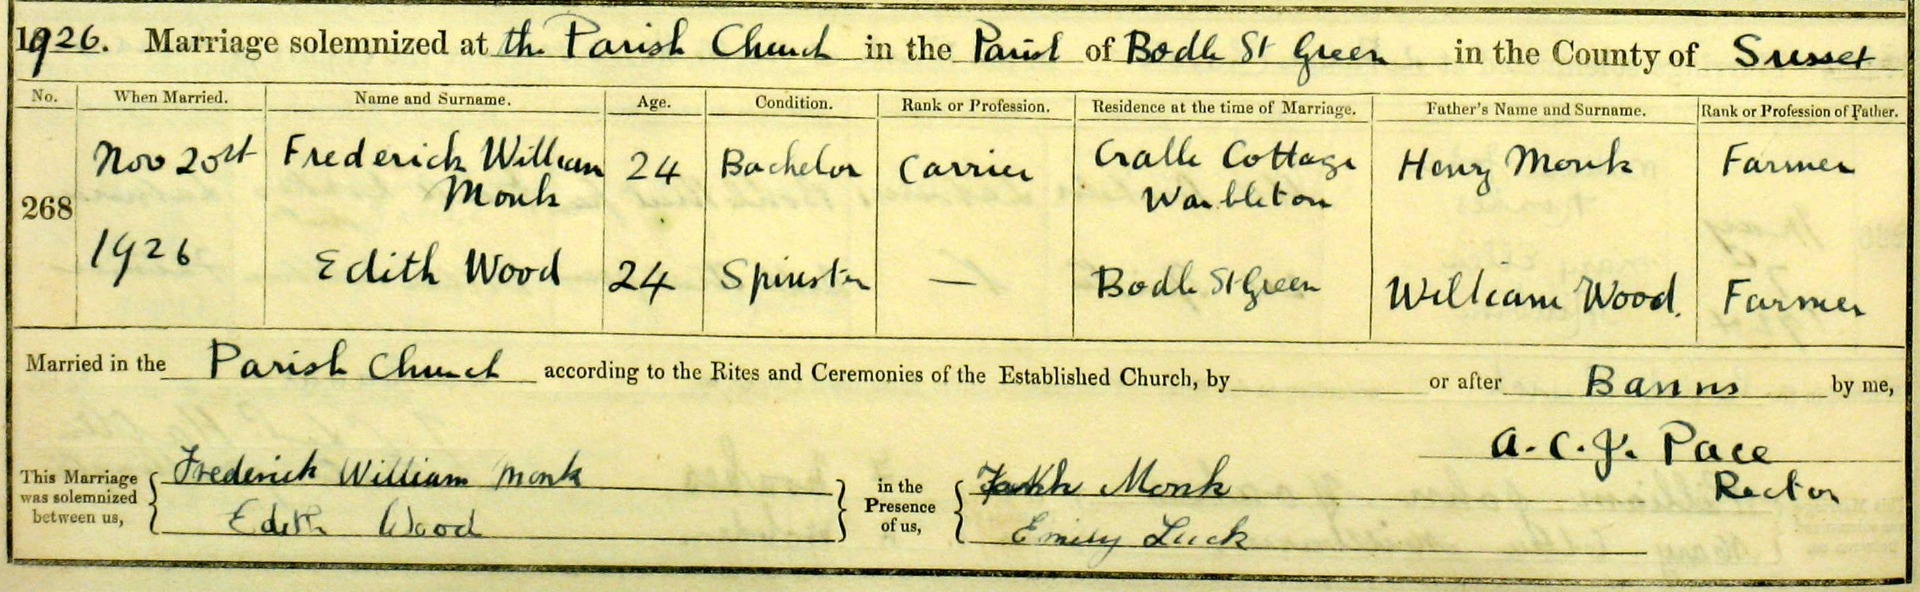 1926. Marriage solemnized at the Parish Church in the Parish of Bodle St Green in the County of Sussex
No. When Married. Name and Surname. Age. Condition. Rank or Profession. Residence at the time of Marriage. Father's Name and Surname. Rank or Profession of Father.
268 Nov 20st 1926
Frederick William Monk 24 Bachelor Carrier Cralle Cottage Warbleton Henry Monk Farmer
Edith Wood 24 Spinster — Bodle St Green William Wood. Farmer
Married in the Parish Church according to the Rites and Ceremonies of the Established Church, by or after Banns by me,
A. C. J. Pace
Rector
This Marriage was solemnized between us,
Frederick William Monk
Edith Wood
in the Presence of us,
Monk
Emily Luck